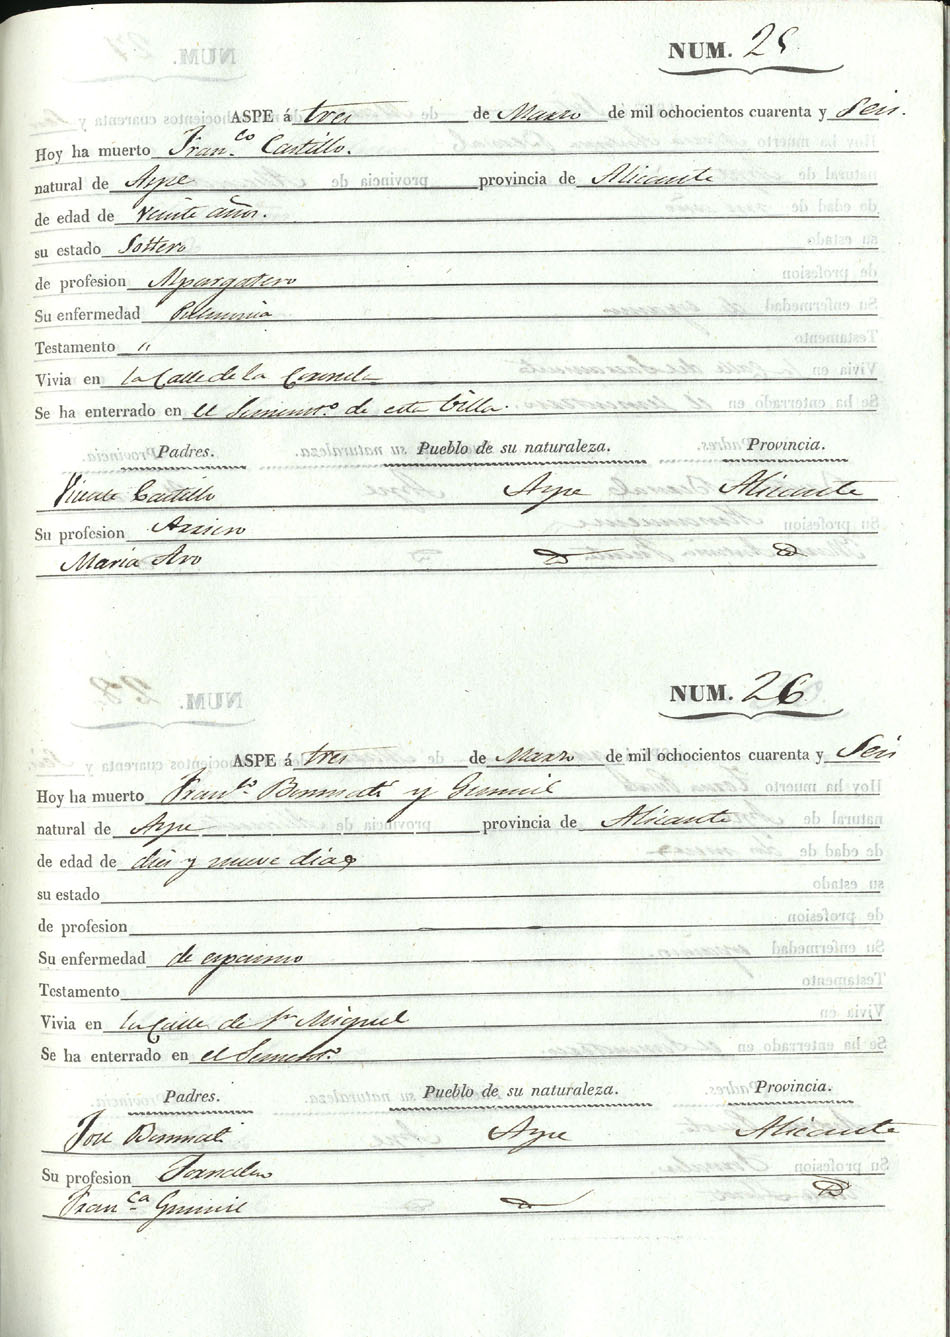 NUM. 25
ASPE á tres de Marzo de mil ochocientos cuarenta y Seis.
Hoy ha muerto Fran.co Castillo.
natural de Aspe provincia de Alicante
de edad de veinte años.
su estado Soltero
de profesion Alpargatero
Su enfermedad Pulmonia
Testamento "
Vivia en la Calle de la
Se ha enterrado en el Sementr.o de esta Villa.
Padres. Pueblo de su naturaleza. Provincia.
Vicente Castillo Aspe Alicante
Su profesion Arriero
Maria Aro D D
NUM. 26
ASPE á tres de Marzo de mil ochocientos cuarenta y Seis
Hoy ha muerto Fran.co y
natural de Aspe provincia de Alicante
de edad de dies y nueve dias
su estado
de profesion
Su enfermedad de espasmo
Testamento
Vivia en la Calle de Sn Miguel
Se ha enterrado en el Sementr.o
Padres. Pueblo de su naturaleza. Provincia.
Jose Aspe Alicante
Su profesion Jornalero
Fran.ca D D